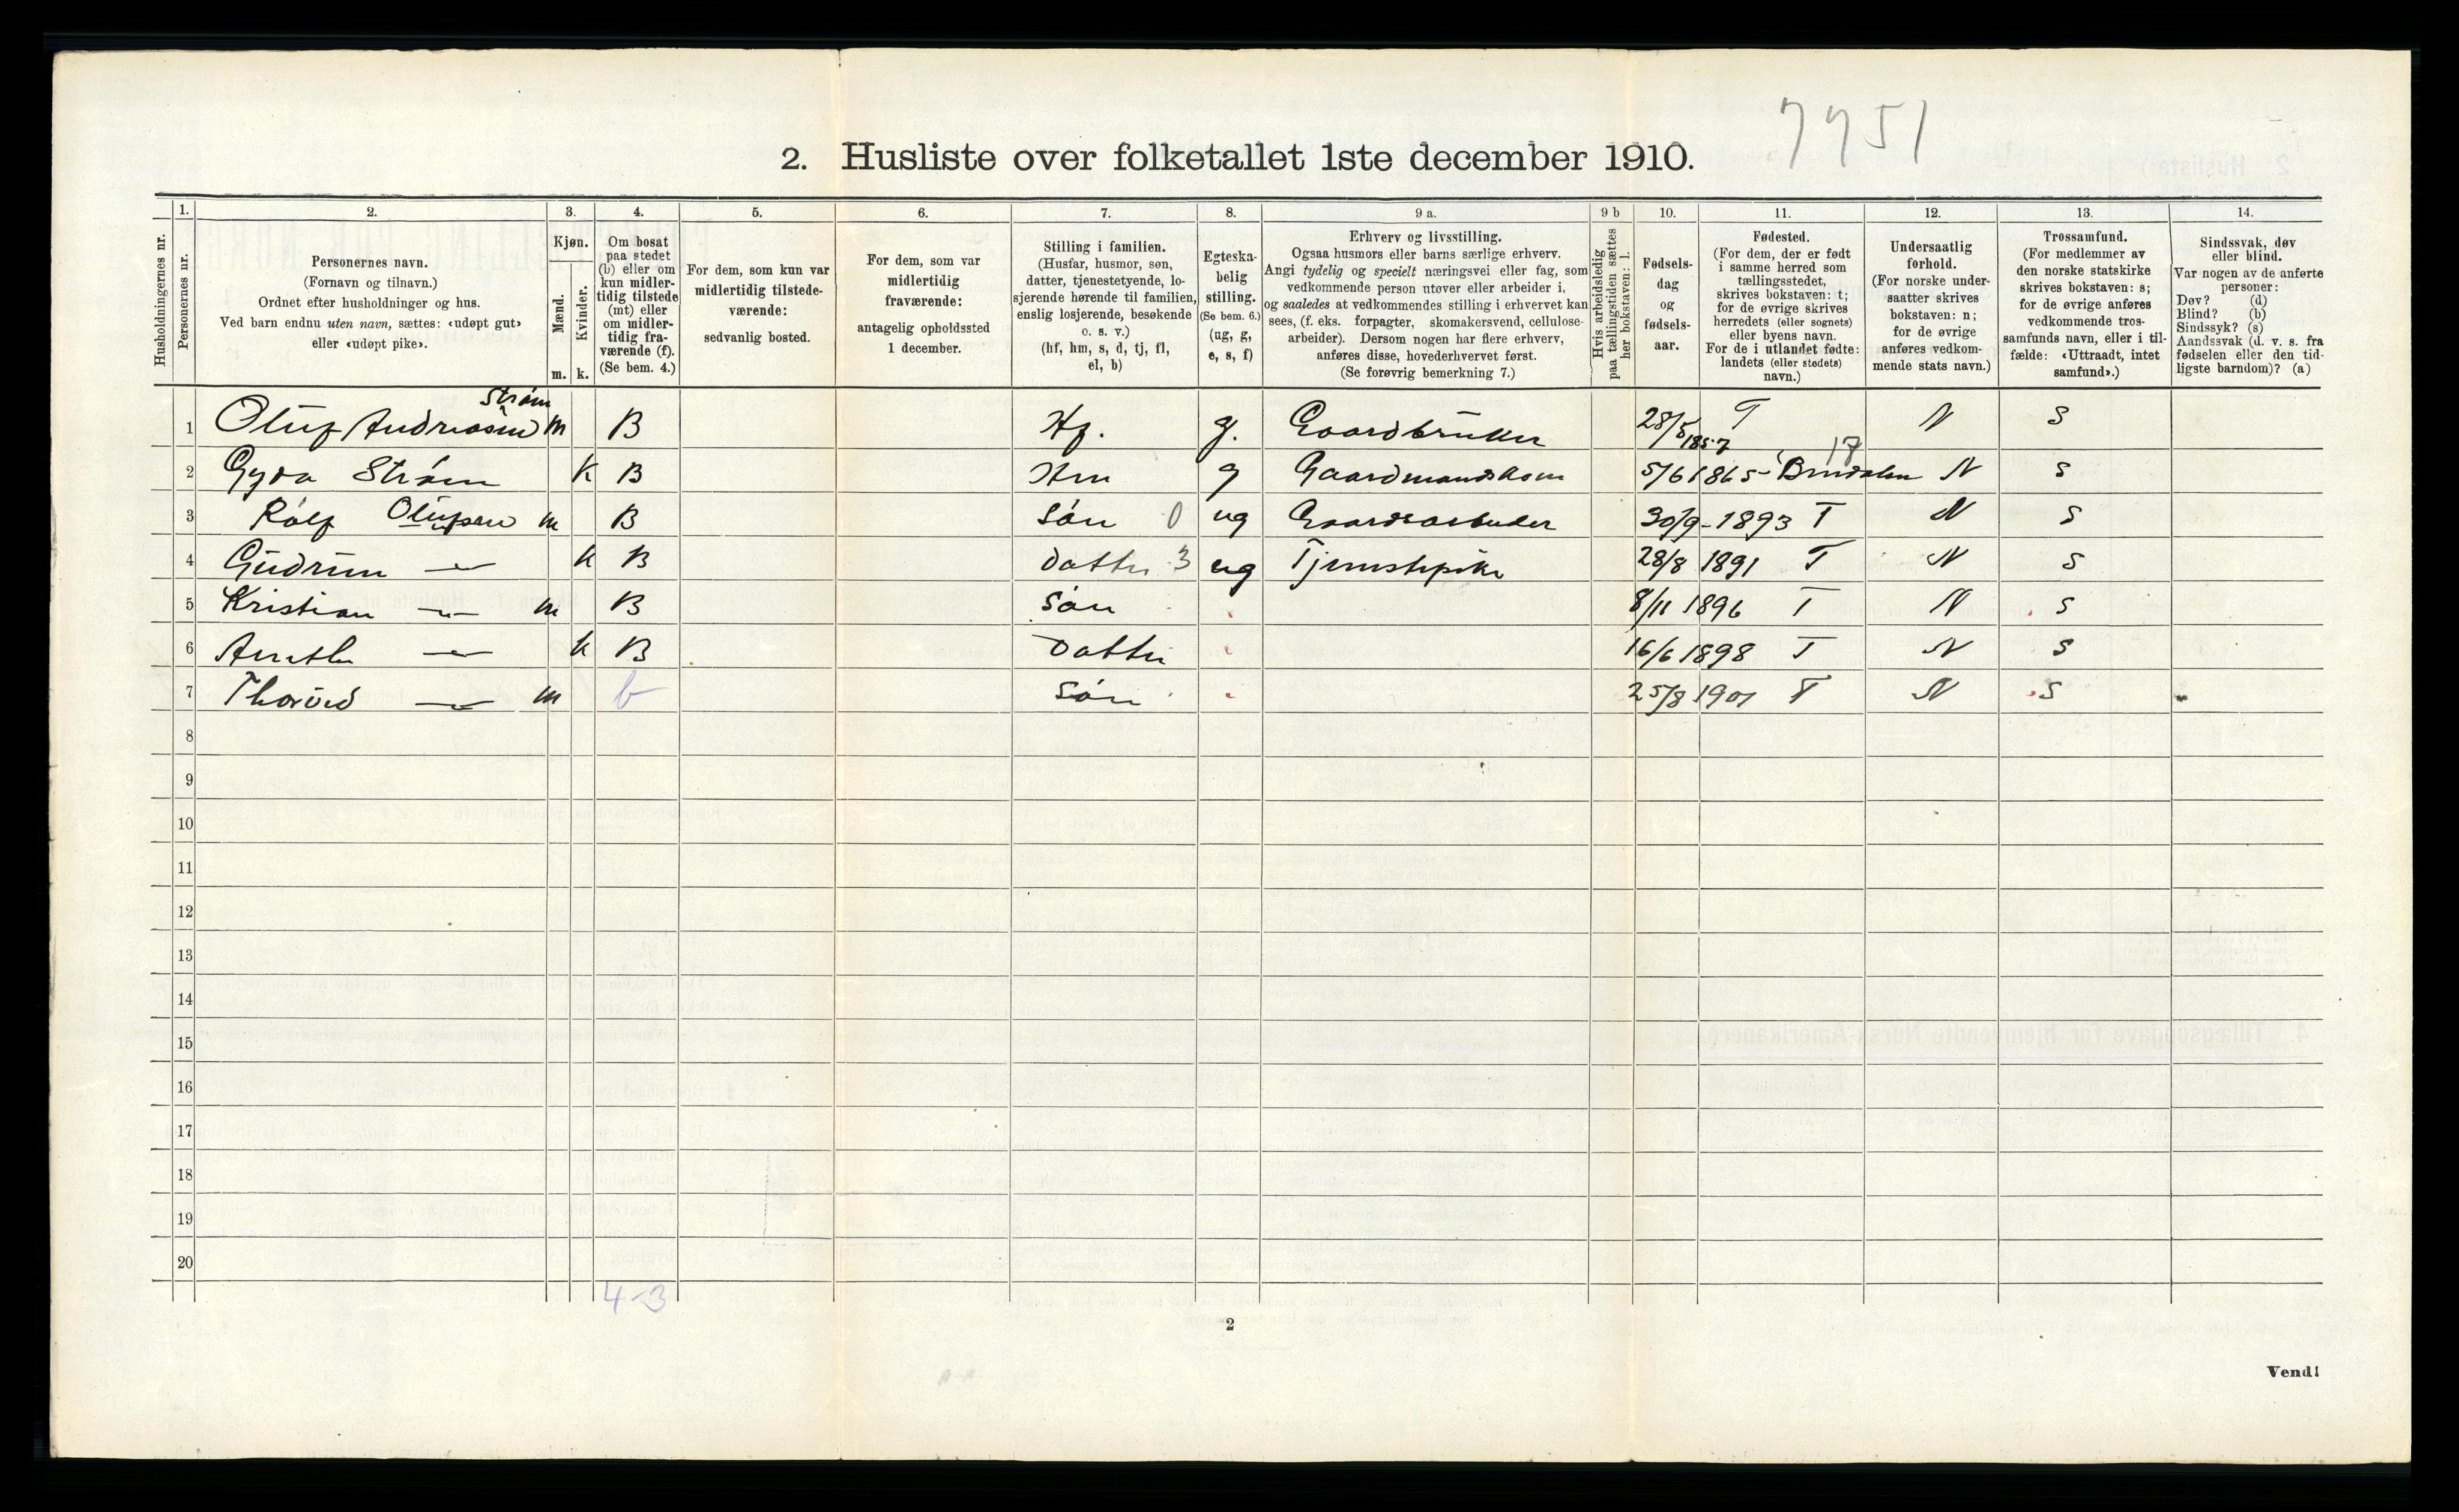 7751
2. Husliste over folketallet 1ste december 1910.
Husholdningernes nr.
1.
Personernes nr.
2.
Personernes navn.
(Fornavn og tilnavn.)
Ordnet efter husholdninger og hus.
Ved barn endnu uten navn, sættes: «udøpt gut»
eller «udøpt pike».
3.
Kjøn.
Mænd.
Kvinder.
m. k.
4.
Om bosat
paa stedet
(b) eller om
kun midler-
tidig tilstede
(mt) eller
om midler-
tidig fra-
værende (f).
(Se bem. 4.)
5.
For dem, som kun var
midlertidig tilstede-
værende:
sedvanlig bosted.
6.
For dem, som var
midlertidig
fraværende:
antagelig opholdssted
1 december.
7.
Stilling i familien.
(Husfar, husmor, søn,
datter, tjenestetyende, lo-
sjerende hørende til familien,
enslig losjerende, besøkende
o. s. v.)
(hf, hm, s, d, tj, fl,
el, b)
8.
Egteska-
belig
stilling.
(Se bem. 6.)
(ug, g,
e, s, f)
9 a.
Erhverv og livsstilling.
Ogsaa husmors eller barns særlige erhverv.
Angi tydelig og specielt næringsvei eller fag, som
vedkommende person utøver eller arbeider i,
og saaledes at vedkommendes stilling i erhvervet kan
sees, (f. eks. forpagter, skomakersvend, cellulose-
arbeider). Dersom nogen har flere erhverv,
anføres disse, hovederhvervet først.
(Se forøvrig bemerkning 7.)
9 b
Hvis arbeidsledig
paa tællingstiden sættes
her bokstaven: l.
10.
Fødsels-
dag
og
fødsels-
aar.
11.
Fødested.
(For dem, der er født
i samme herred som
tællingsstedet,
skrives bokstaven: t;
for de øvrige skrives
herredets (eller sognets)
eller byens navn.
For de i utlandet fødte:
landets (eller stedets)
navn.)
12.
Undersaatlig
forhold.
(For norske under-
saatter skrives
bokstaven: n;
for de øvrige
anføres vedkom-
mende stats navn.)
13.
Trossamfund.
(For medlemmer av
den norske statskirke
skrives bokstaven: s;
for de øvrige anføres
vedkommende tros-
samfunds navn, eller i til-
fælde: «Uttraadt, intet
samfund».)
14.
Sindssvak, døv
eller blind.
Var nogen av de anførte
personer:
Døv? (d)
Blind? (b)
Sindssyk? (s)
Aandssvak (d. v. s. fra
fødselen eller den tid-
ligste barndom)? (a)
Strøm
1 Oluf Andreasen m B Hf. g. Gaardbruker 28/5 1857 T N S
17
2 Gyda Strøm K B Hm g Gaardmandskone 5/6 1865 Brudalen N S
3 Rolf Olufsen m B Søn 0 ug Gaardsarbeider 30/9-1893 T N S
4 Gudrun —"— k B Datter 3 ug Tjenestepike 28/8 1891 T N S
5 Kristian —"— m B Søn 8/11 1896 T N S
6 —"— k B Datter 16/6 1898 T N S
7 —"— m b Søn 25/8 1901 T N S
8
9
10
11
12
13
14
15
16
17
18
19
20
4-3
2
Vend!